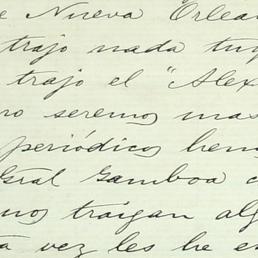 e Nueva Orlean
trajo nada tuy
trajo el "Alex
ro seremos mas
periódicos hem
Gral Gamboa c
nos traigan alg
a vez les he es